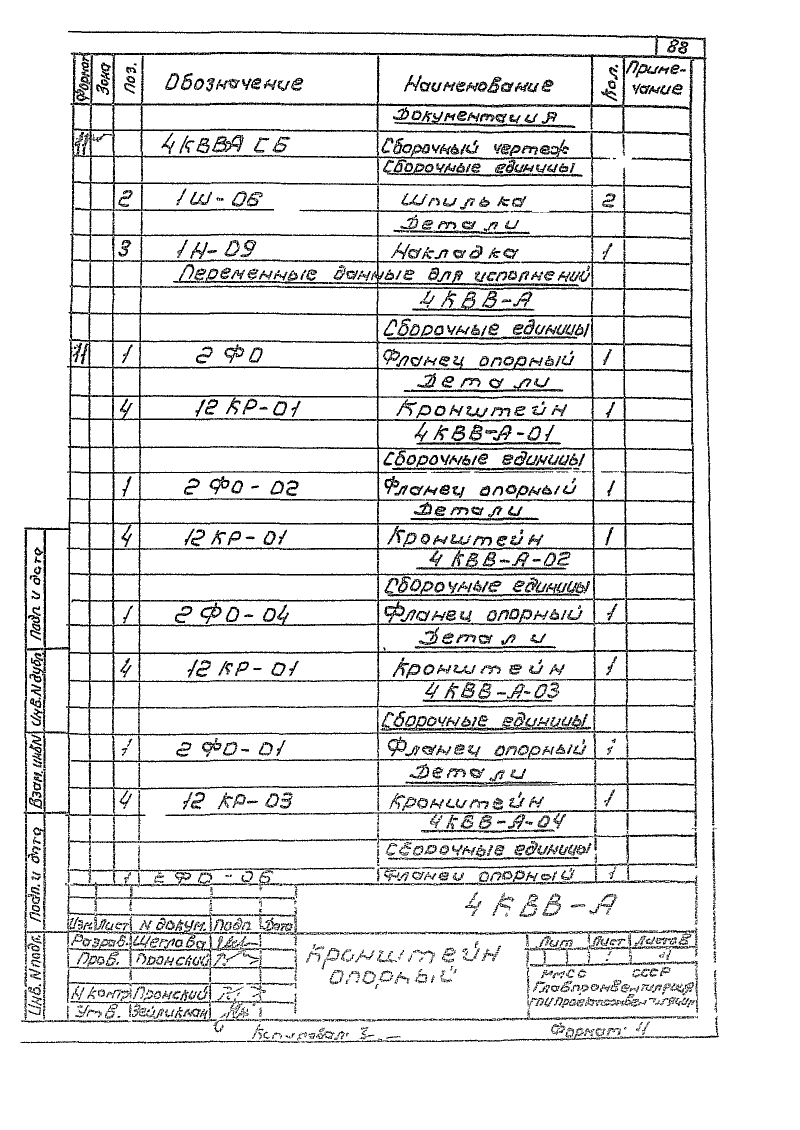 88
Формат Зона Поз. Обозначение Наименование Кол. Приме-
чание
Документация
11 4КВВА СБ Сборочный чертеж
Сборочные единицы
2 1Ш-06 Шпилька 2
Детали
3 1Н-09 Накладка 1
Переменные данные для исполнений
4КВВ-А
Сборочные единицы
11 1 2ФО Фланец опорный 1
Детали
4 12КР-01 Кронштейн 1
4КВВ-А-01
Сборочные единицы
1 2ФО-02 Фланец опорный 1
Детали
4 12КР-01 Кронштейн 1
4КВВ-А-02
Сборочные единицы
1 2ФО-04 Фланец опорный 1
Детали
4 12КР-01 Кронштейн 1
4КВВ-А-03
Сборочные единицы
1 2ФО-01 Фланец опорный 1
Детали
4 12КР-03 Кронштейн 1
4КВВ-А-04
Сборочные единицы
1 2ФО-06 Фланец опорный 1
Подп. и дата
Инв.N дубл.
Взам.инв.N
Подп. и дата
Инв. N подл.
4КВВ-А
Изм. Лист N докум. Подп Дата
Разраб. Щеглова
Пров. Пронский
Н контр Пронский
Утв. Зейликман
Кронштейн
опорный
Лит Лист Листов
ММСС СССР
Главпромвентиляция
ГПИ Проектпромвентиляция
Копировал:
Формат: 11